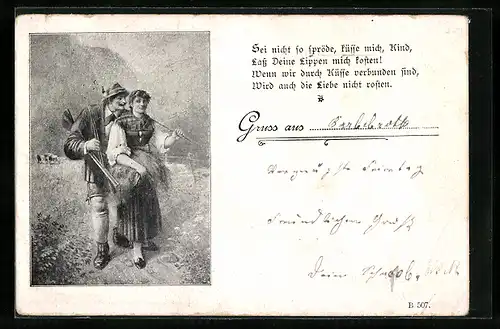 Sei nicht so spröde, küsse mich, Kind,
Laß Deine Lippen mich kosten!
Wenn wir durch Küsse verbunden sind,
Wird auch die Liebe nicht rosten.
Gruss aus
Vergnügte Feiertag
Freundlichen Gruß
Dein
B 507.